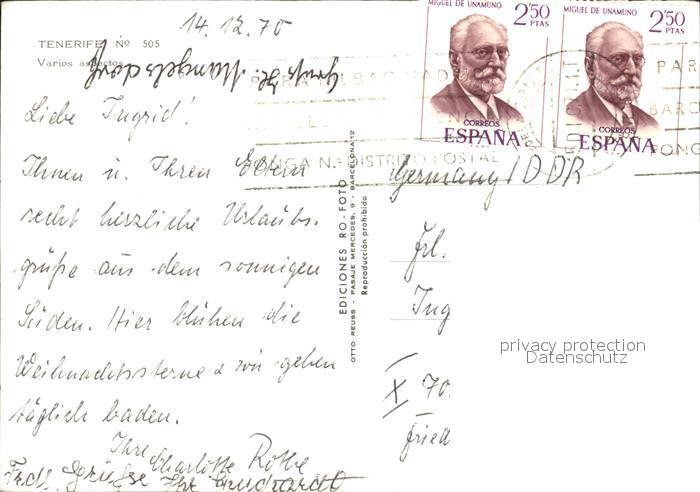 14.12.70
TENERIFE Nº 505
Varios aspectos
Liebe Ingrid!
Ihnen u. Ihren Eltern
recht herzliche Urlaubs-
grüße aus dem sonnigen
Süden. Hier blühen die
Weihnachtssterne & wir gehen
täglich baden.
Ihre
Charlotte Rothe
Frdl. Grüsse Ihr
EDICIONES RO-FOTO
OTTO REUSS - PASAJE MERCEDES, 9 - BARCELONA 12
Reproducción prohibido
MIGUEL DE UNAMUNO
2'50
PTAS
CORREOS
ESPAÑA
MIGUEL DE UNAMUNO
2'50
PTAS
CORREOS
ESPAÑA
PARA BILBAO MAD
PONGA N.º DISTRITO POSTAL
PAR
BARC
PONG
Germany/DDR
Frl.
Ing
X 70
Fried
privacy protection
Datenschutz